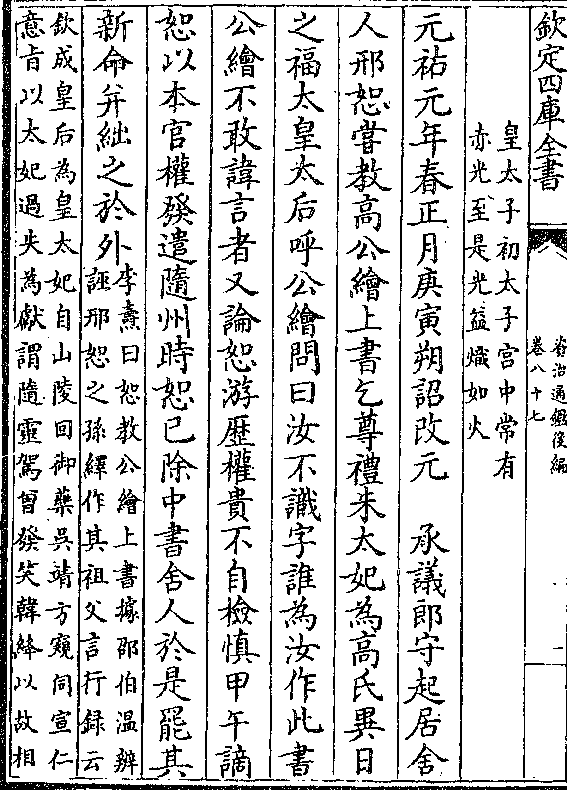 欽定四庫全書
資治通鑑後編
卷八十七
一
皇太子初太子宫中常有
赤光至是光益熾如火
元祐元年春正月庚寅朔詔改元　承議郎守起居舍
人邢恕嘗教高公繪上書乞尊禮朱太妃為高氏異日
之福太皇太后呼公繪問曰汝不識字誰為汝作此書
公繪不敢諱言者又論恕游歴權貴不自檢慎甲午謫
恕以本官權發遣隨州時恕已除中書舍人於是罷其
新命并絀之於外
李燾曰恕教公繪上書據邵伯温辨
誣邢恕之孫繹作其祖父言行録云
欽成皇后為皇太妃自山陵回御藥吳靖方窺同宣仁
意旨以太妃過失為獻謂隨靈駕曾發笑韓絳以故相